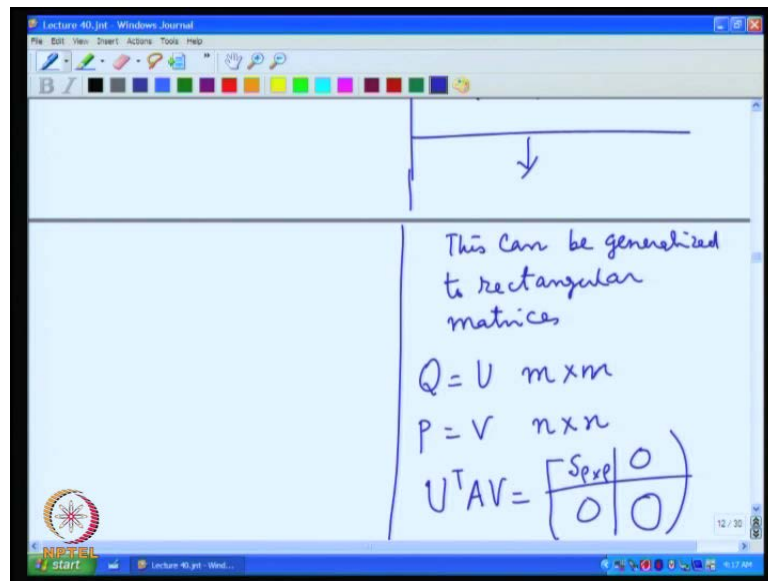 Lecture 40.jnt - Windows Journal
File Edit View Insert Actions Tools Help
B I
This can be generalized
to rectangular
matrices
Q = U m × m
P = V n × n
UᵀAV = [ S_{ρ×ρ} | 0
0 | 0 )
12 / 30
NPTEL
start Lecture 40.jnt - Wind... 4:17 AM